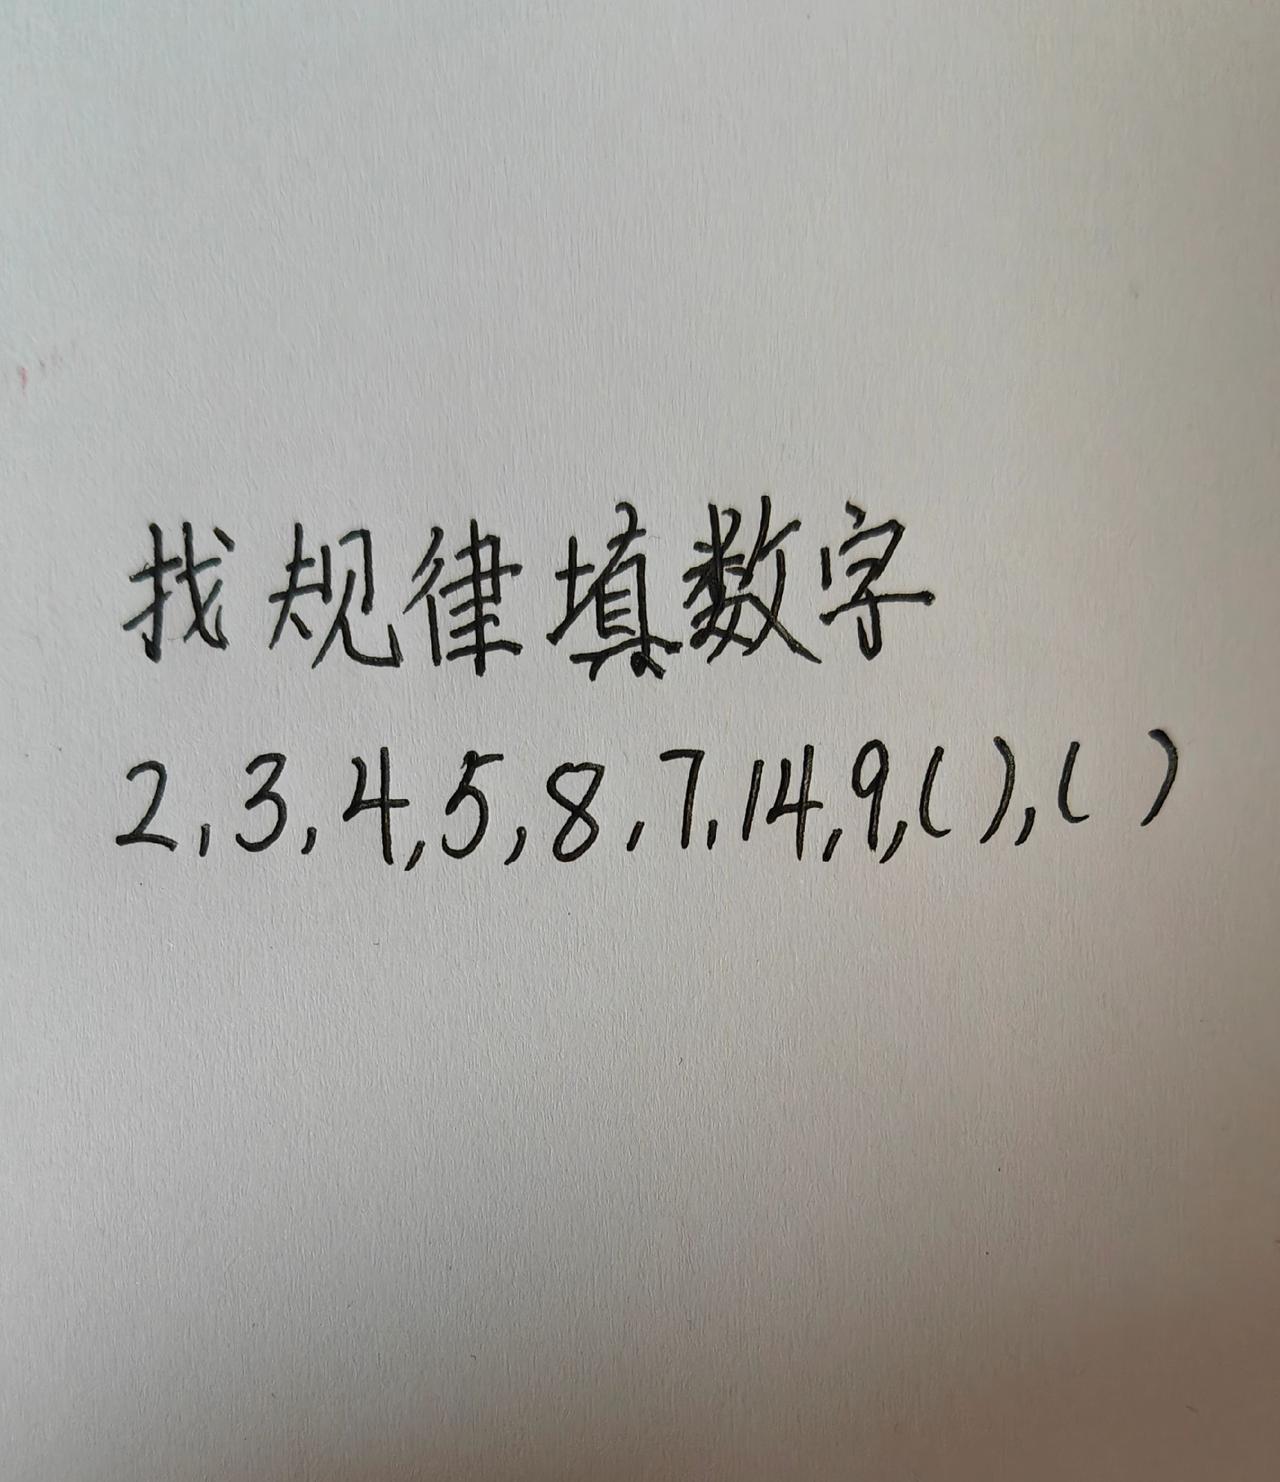 找规律填数字
2,3,4,5,8,7,14,9,( ),( )